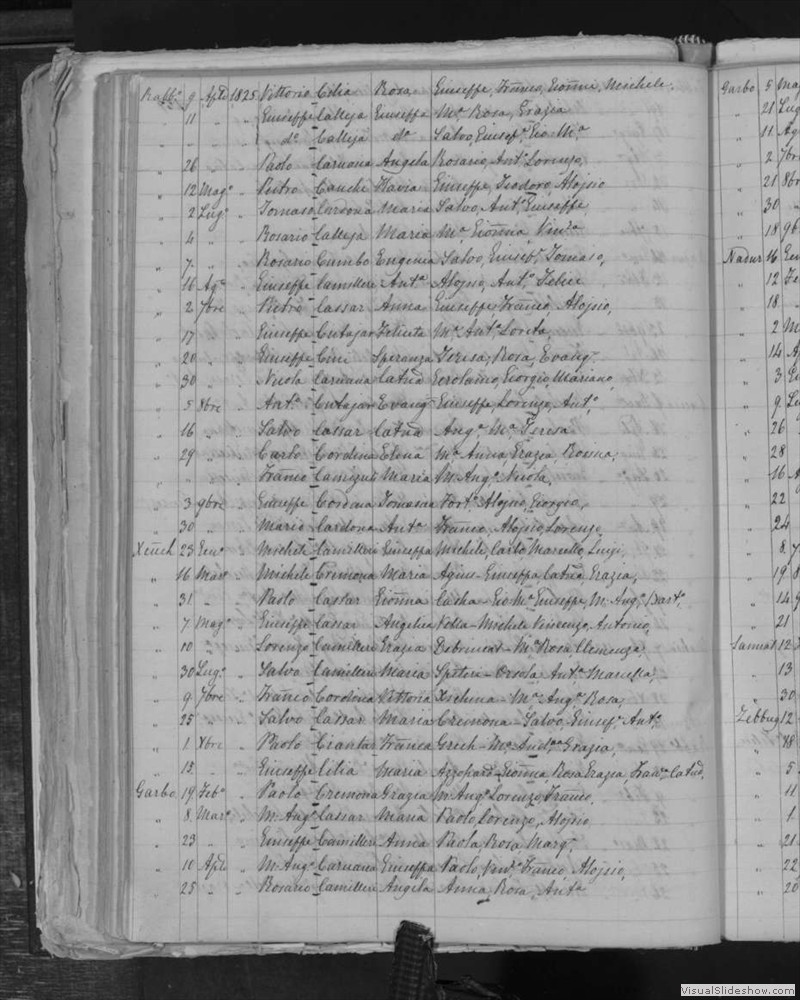 Rabbto 9 Aple 1825 Vittorio Cilia Rosa Giuseppe, Franco, Giomni, Michele.
" 11 " " Giuseppe Calleja Giuseppa Ma Rosa, Grazia
" " " " do Calleja do Salvo, Giusepe, Gio Ma
" 26 " " Paolo Caruana Angela Rosario, Anto Lorenzo,
" 12 Mago " Pietro Cauchi Flavia Giuseppe, Teodoro, Aloisio
" 2 Lugo " Tomaso Cardona Maria Salvo, Anto, Giuseppe,
" 4 " " Rosario Calleja Maria Ma Giomna, Vinza
" 7 " " Rosario Cumbo Eugenia Salvo, Giusepe, Tomaso,
" 16 Ago " Giuseppe Camilleri Anta Aloisio, Anto, Felice
" 2 7bre " Pietro Cassar Anna Giuseppe, Franco, Aloisio,
" 17 " " Giuseppe Cutajar Felicita Ma Anta, Loreta,
" 20 " " Giuseppe Cini Speranza Teresa, Rosa, Evang.
" 30 " " Nicola Caruana Catna Gerolamo, Giorgio, Mariano,
" 5 8bre " Anto Cutajar Evang. Giuseppe, Lorenzo, Anto,
" 16 " " Salvo Cassar Catna Anga Ma Teresa
" 29 " " Carlo Cordina Elena Ma Anna, Grazia, Rosina,
" " " " Franco Maria M. Ango Nicola,
" 3 9bre " Giuseppe Cordona Tomasina Aloisio, Giorgio,
" 30 " " Mario Cardona Anta Franco, Aloisio, Lorenzo
Xeuch 23 Geno " Michele Camilleri Giuseppa Michele, Carlo Marcello, Luigi,
" 16 Maro " Michele Cremona Maria Agius - Giuseppa, Catna, Grazia,
" 31 " " Paolo Cassar Giomna Cascha - Gio Ma Giuseppe, M. Ango, Barto,
" 7 Mago " Giuseppe Cassar Angelica Vella - Michele Vincenzo, Antonio,
" 10 " " Lorenzo Camilleri Grazia - Ma Rosa, Clemenza,
" 30 Lugo " Salvo Camilleri Maria Spiteri - Orsola, Anta, Mariella,
" 9 7bre " Franco Cordona Vittoria Xichma - Ma Anga Rosa,
" 25 " " Salvo Cassar Maria Cremona - Salvo, Giusepe, Anto,
" 1 Xbre " Paolo Ciantar Franca Grech - Ma Grazia,
" 15 " " Giuseppe Cilia Maria Azzopardi - Giomna, Rosa, Grazia, Catna,
Garbo 19 Febo " Paolo Cremona Grazia M. Ango Lorenzo, Franco,
" 8 Maro " M. Ango Cassar Maria Paolo, Lorenzo, Aloisio
" 23 " " Giuseppe Camilleri Anna Paola, Rosa, Marga
" 10 Aple " M. Ango Caruana Giuseppa Paolo, Vino, Franco, Aloisio,
" 25 " " Rosario Camilleri Angela Anna, Rosa, Anta
Garbo 5
" 21
" 11
" 2 7bre
" 21 8bre
" 30 "
" 18 9b
Nadur 16
" 12
" 18
" 2
" 14
" 3
" 9
" 26
" 28
" 16
" 22
" 24
" 8
" 19
" 14
" 21
Sannat 12
" 13
" 30
Zebbug 12
" 18
" 5
" 11
" 1
" 21
" 22
" 20
VisualSlideshow.com